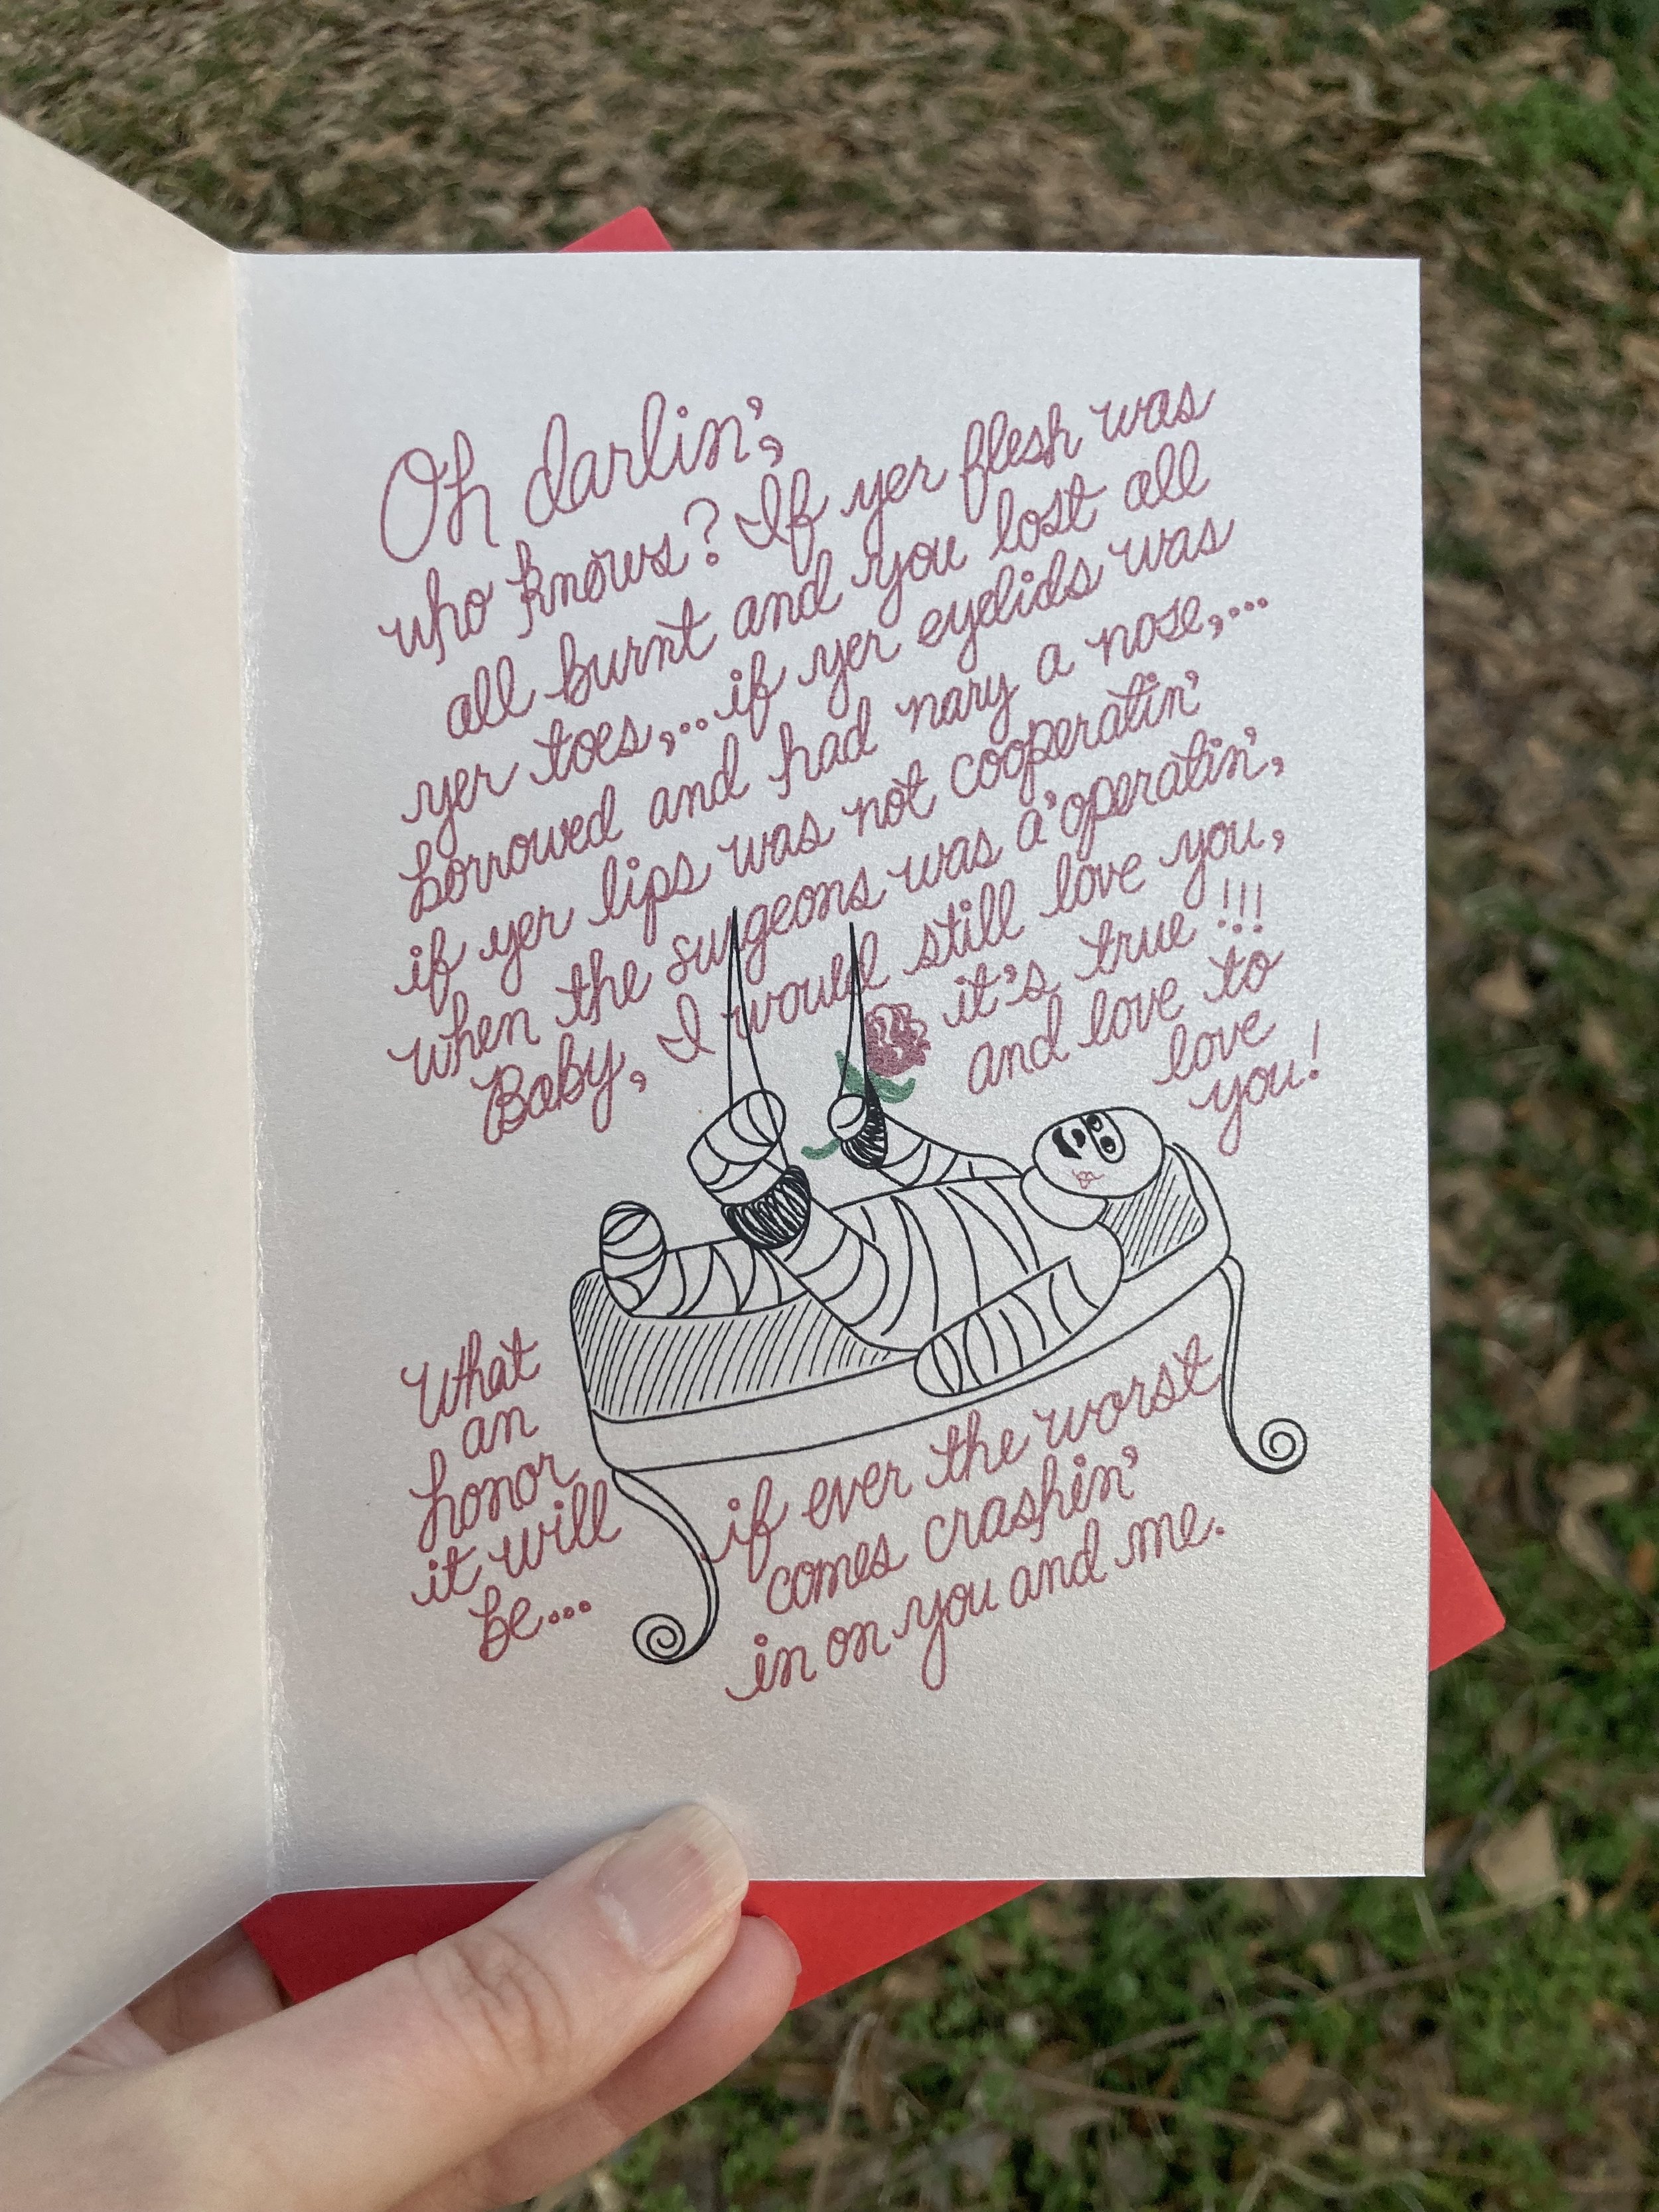 Oh darlin',
who knows? If yer flesh was
all burnt and you lost all
yer toes,...if yer eyelids was
borrowed and had nary a nose,...
if yer lips was not cooperatin'
when the surgeons was a'operatin',
Baby, I would still love you,
it's true!!!
and love to
love
you!
What
an
honor
it will
be...
if ever the worst
comes crashin'
in on you and me.